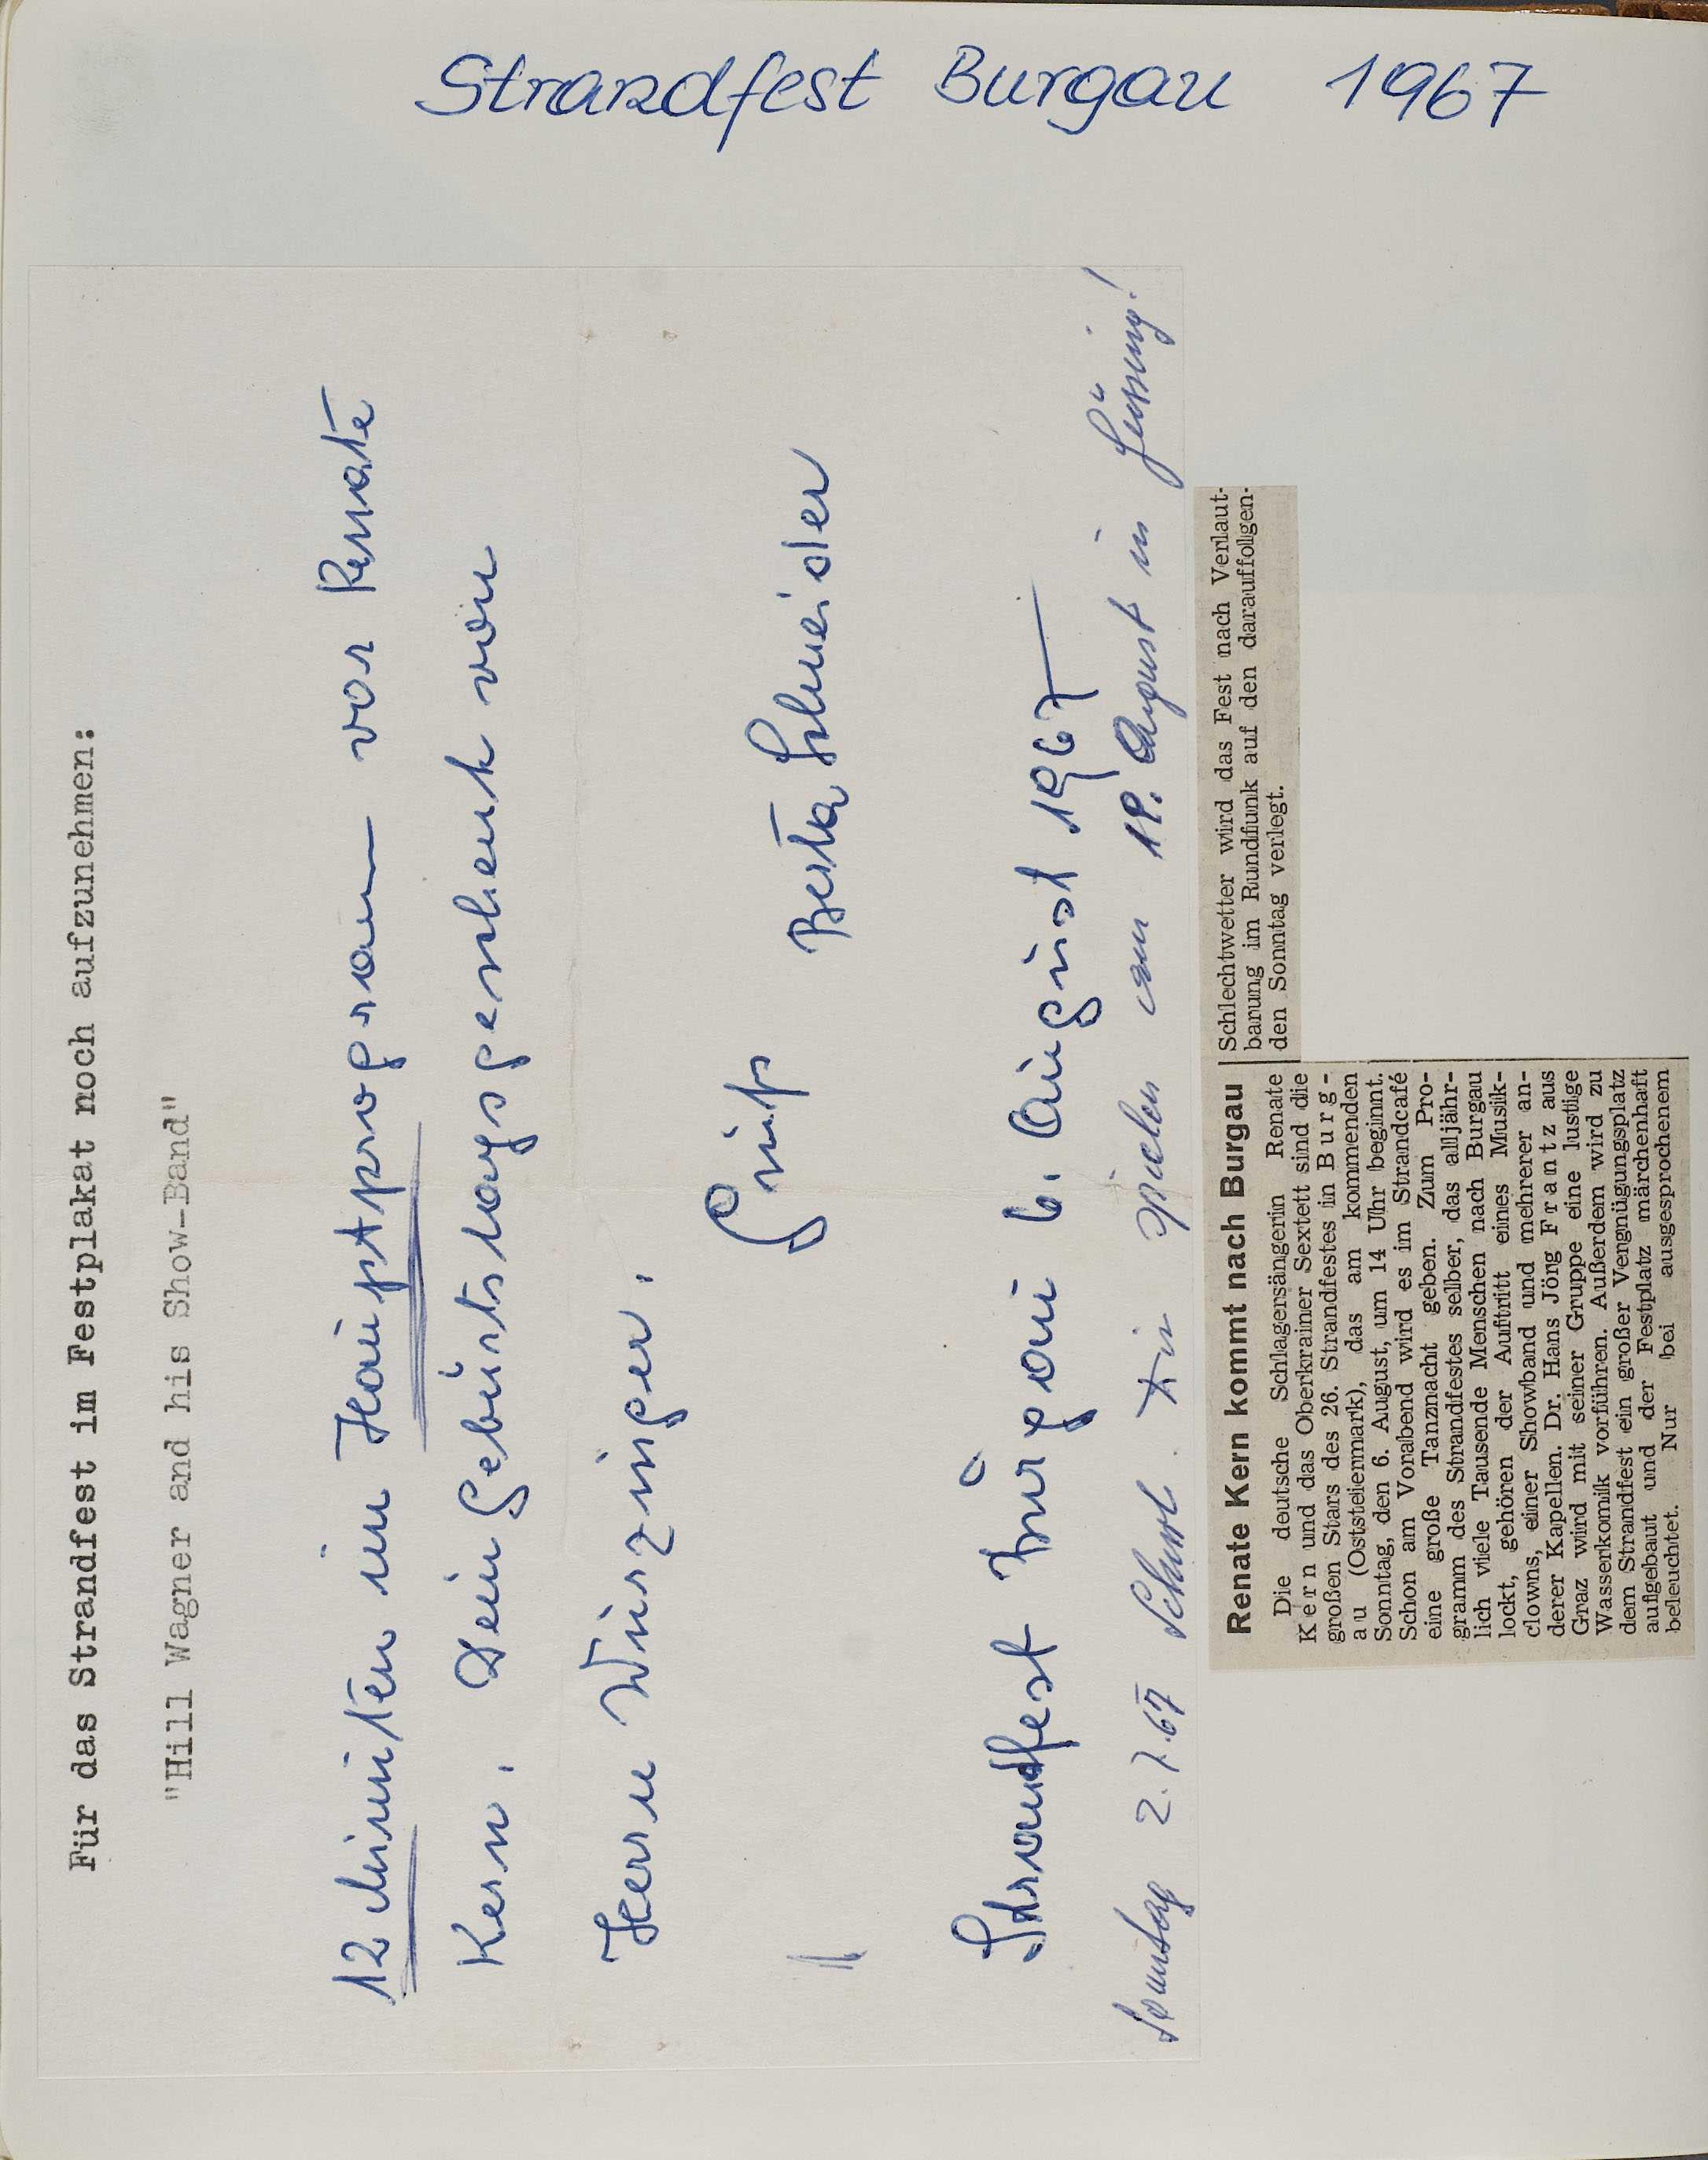 Strandfest Burgau 1967
Für das Strandfest im Festplakat noch aufzunehmen:
"Hill Wagner and his Show-Band"
12 Minuten im Hauptprogram vor Renate
Kern. Dein Geburtstagsgeschenk von
Herrn Wurzinger.
Gruß
Berta Schneider
Strandfest Burgau 6. August 1967
Sonntag 2.7.67 Schurl. Wir spielen am 19. August in Güssing!
Renate Kern kommt nach Burgau
Die deutsche Schlagersängerin Renate
Kern und das Oberkrainer Sextett sind die
großen Stars des 26. Strandfestes in Burg-
au (Oststeiermark), das am kommenden
Sonntag, den 6. August, um 14 Uhr beginnt.
Schon am Vorabend wird es im Strandcafé
eine große Tanznacht geben. Zum Pro-
gramm des Strandfestes selber, das alljähr-
lich viele Tausende Menschen nach Burgau
lockt, gehören der Auftritt eines Musik-
clowns, einer Showband und mehrerer an-
derer Kapellen. Dr. Hans Jörg Frantz aus
Graz wird mit seiner Gruppe eine lustige
Wasserkomik vorführen. Außerdem wird zu
dem Strandfest ein großer Vergnügungsplatz
aufgebaut und der Festplatz märchenhaft
beleuchtet. Nur bei ausgesprochenem
Schlechtwetter wird das Fest nach Verlaut-
barung im Rundfunk auf den darauffolgen-
den Sonntag verlegt.